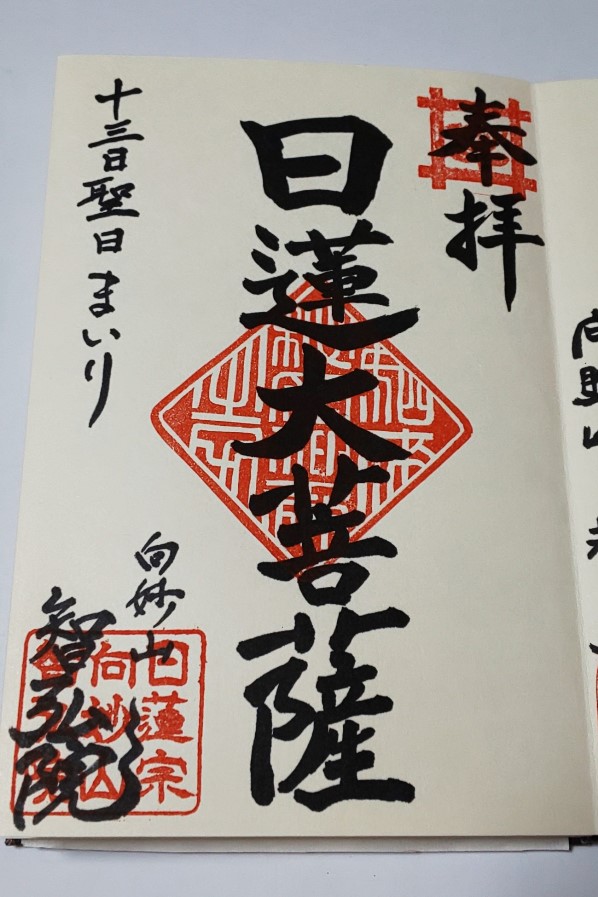 奉拝
日蓮大菩薩
十三日聖日まいり
向妙山
智弘院
日蓮宗
向妙山
智弘院